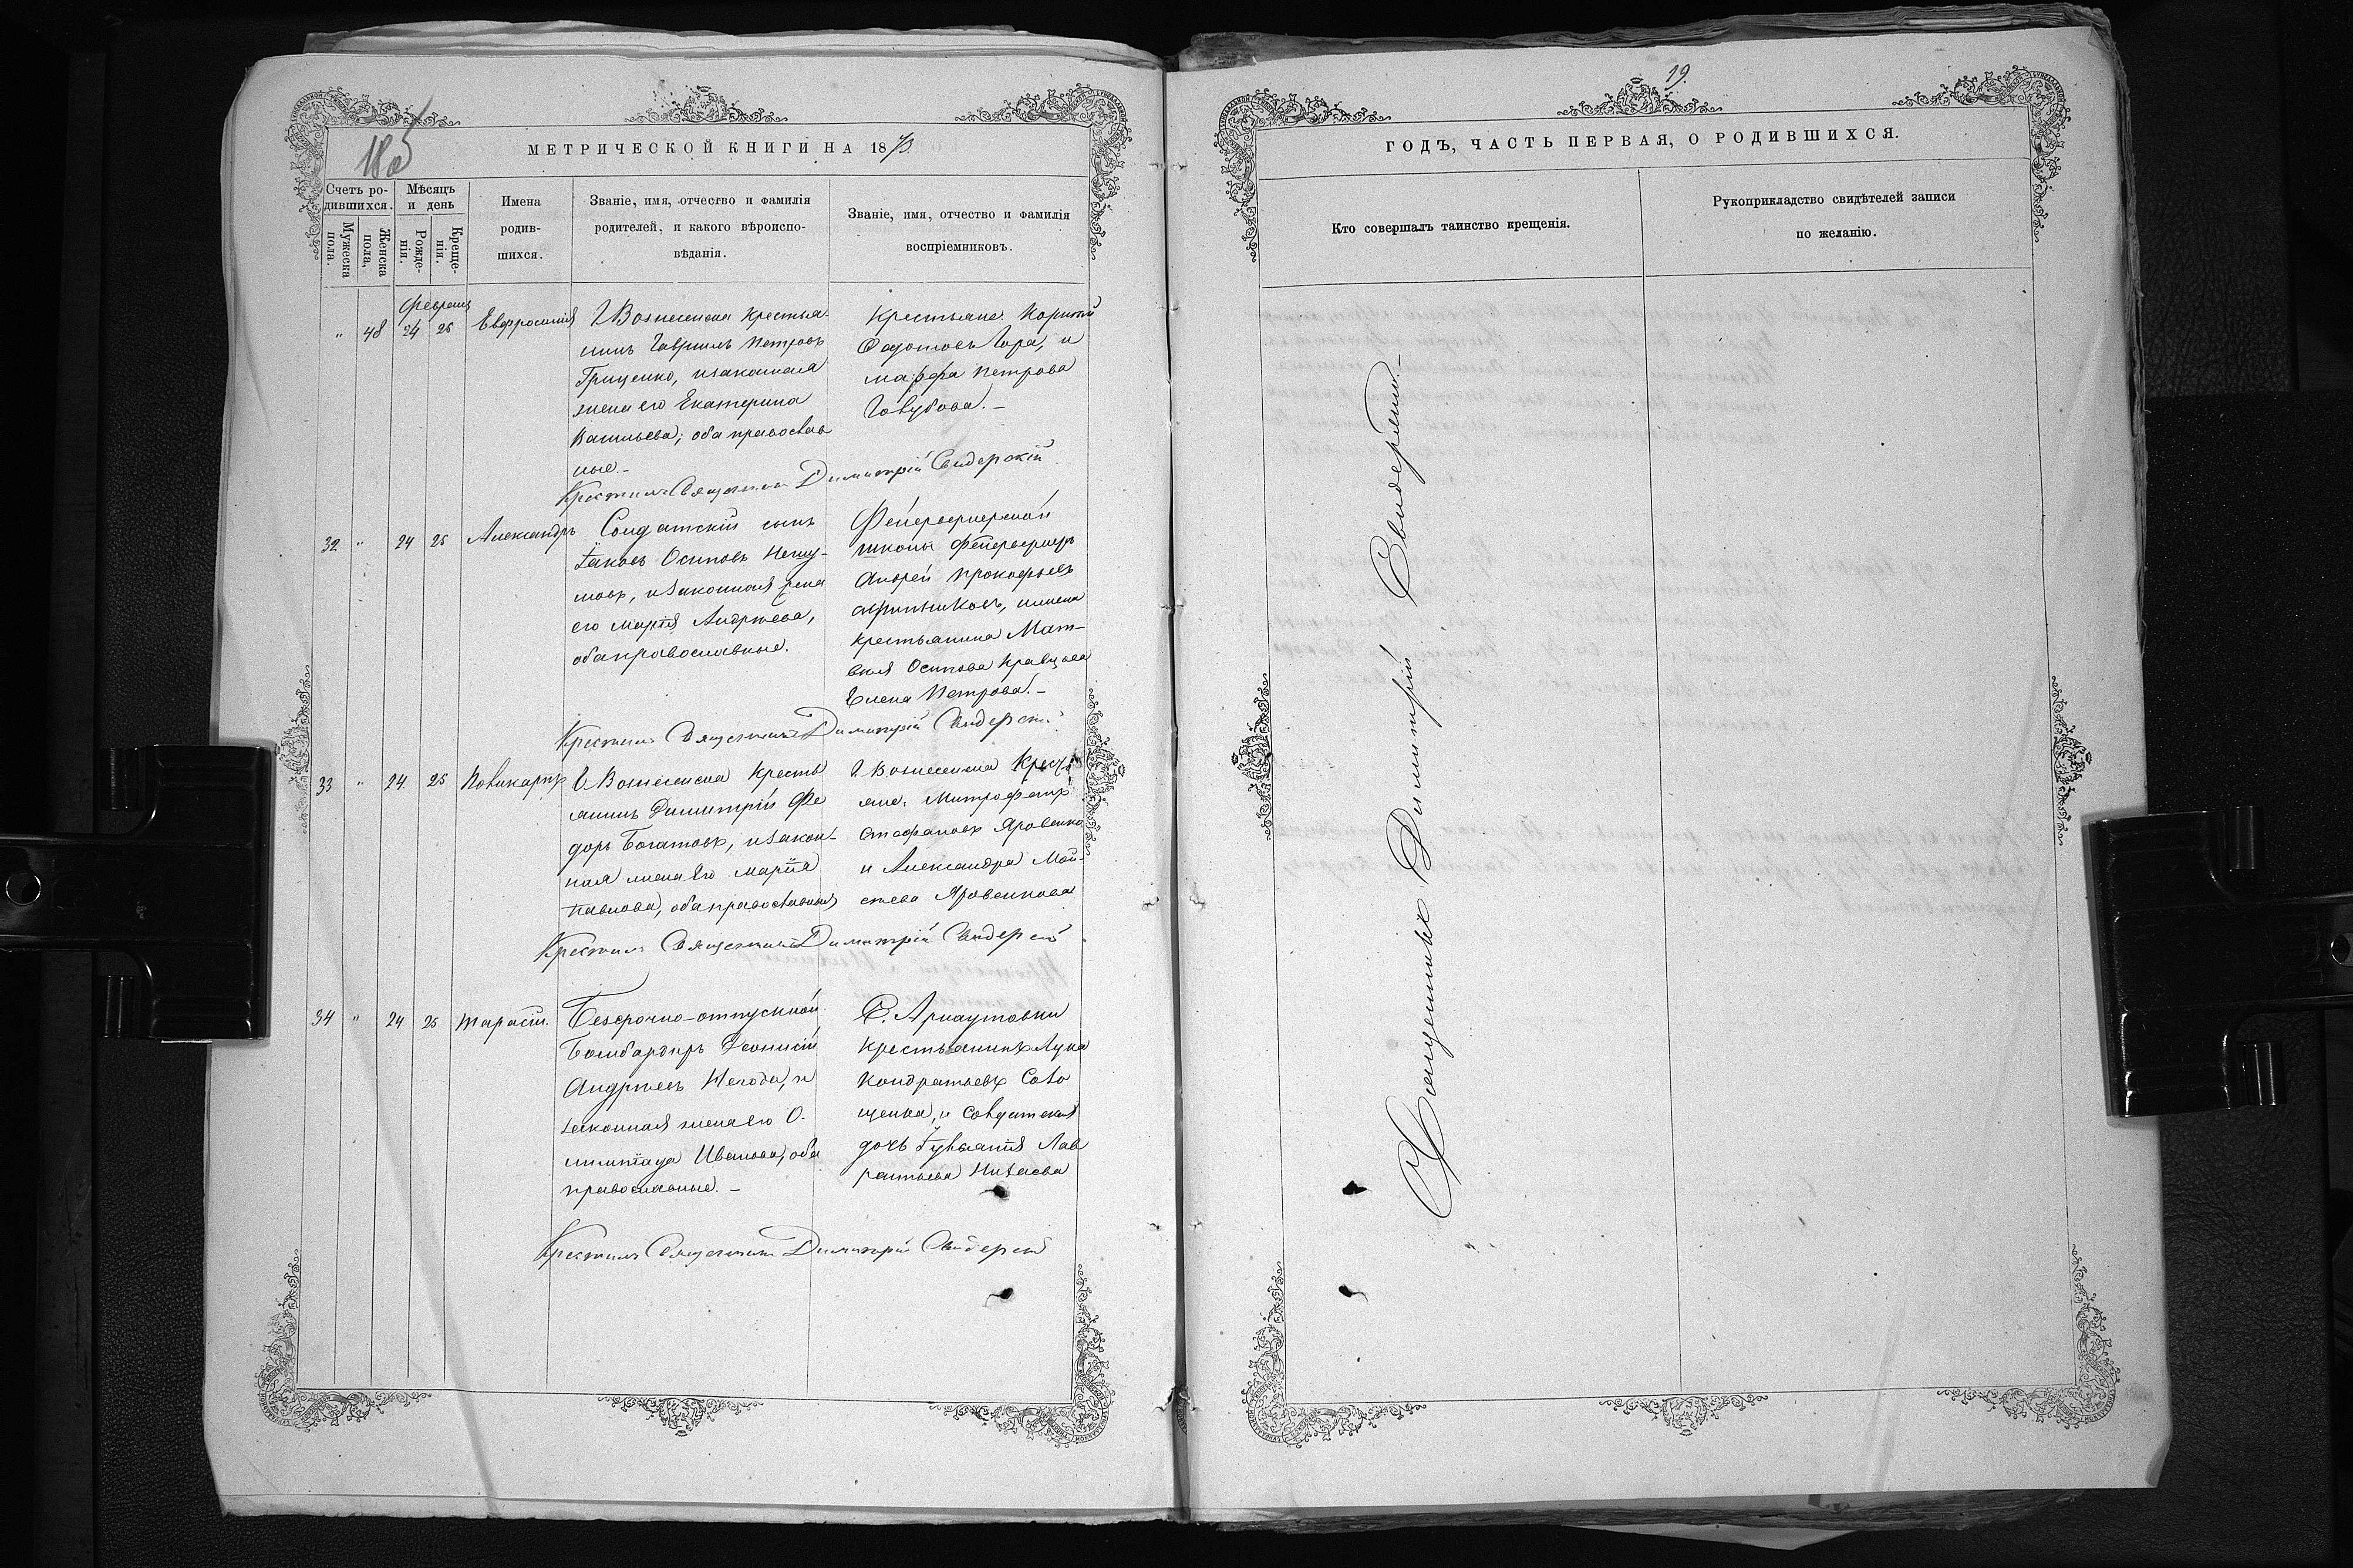 МЕТРИЧЕСКОЙ КНИГИ НА 1873
Счетъ родившихся.
Мужеска пола.
Женска пола.
Мѣсяцъ и день
Рожденія.
Крещенія.
Имена родившихся.
Званіе, имя, отчество и фамилія родителей, и какого вѣроисповѣданія.
Званіе, имя, отчество и фамилія воспріемниковъ.
Февраля
" 48 24 25 Евфросинія
Г Вознесенска крестья
нинъ Гавриилъ Петровъ
Гриценко, и законная
жена его Екатерина
Васильева; оба православ
ные.–
Крестьяне: Корнилій
Федотовъ Гора, и
Марфа Петрова
Голубова.–
Крестилъ Священникъ Димитрій Свидерскій
32 " 24 25 Александръ
Солдатскій сынъ
Іаковъ Осиповъ
и законная жена
его Марія Андреева,
оба православные.
Фейерверкерской
школы Фейерверкеръ
Андрей Прокофьевъ
и жена
крестьянина Мат-
вея Осипова Кравцова
Елена Петрова.–
Крестилъ Священникъ Димитрій Свидерскій
33 " 24 25 Поликарпъ
Г Вознесенска Кресть
янинъ Димитрій Фе
доръ Богатовъ, и закон-
ная жена его Марія
Павлова, оба православныя
Г. Вознесенска Кресть
яне: Митрофанъ
Стефановъ Яровенко
и Александра Мой-
сеева Яровенкова
Крестилъ Священникъ Димитрій Свидерскій
34 " 24 25 Тарасій.
Безсрочно-отпускной
Бомбардиръ Діонисій
Андреевъ Негода, и
законная жена его О-
лимпіада Иванова, оба
православные.–
С. Арнаутовки
крестьянинъ Лука
Кондратьевъ Соло
щенка, и солдатская
дочь Іуліанія Лав
рентьева Низаева
Крестилъ Священникъ Димитрій Свидерскій
19.
ГОДЪ, ЧАСТЬ ПЕРВАЯ, О РОДИВШИХСЯ.
Кто совершалъ таинство крещенія.
Рукоприкладство свидѣтелей записи по желанію.
Священникъ Димитрій Свидерскій.–